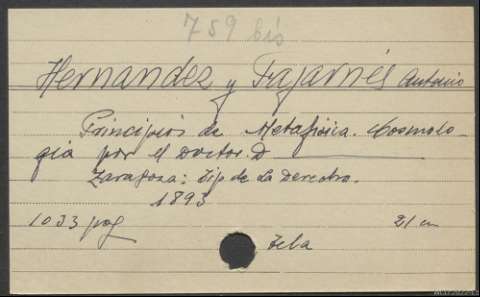 759 bis
Hernandez y Fajarnés Antonio
Principios de Metafísica. Cosmolo-
gía por el Doctor D
Zaragoza: Tip de La Derecha.
1893
1033 pag 21 cm
Tela